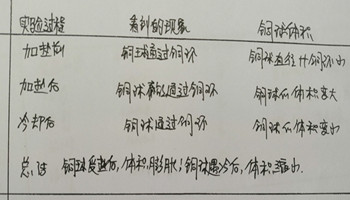 实验过程 看到的现象 铜球体积
加热前 铜球通过铜环 铜球直径比铜环小
加热后 铜球不能通过铜环 铜球的体积变大
冷却后 铜球通过铜环 铜球的体积变小
总过 铜球受热后,体积膨胀;铜球遇冷后,体积缩小.